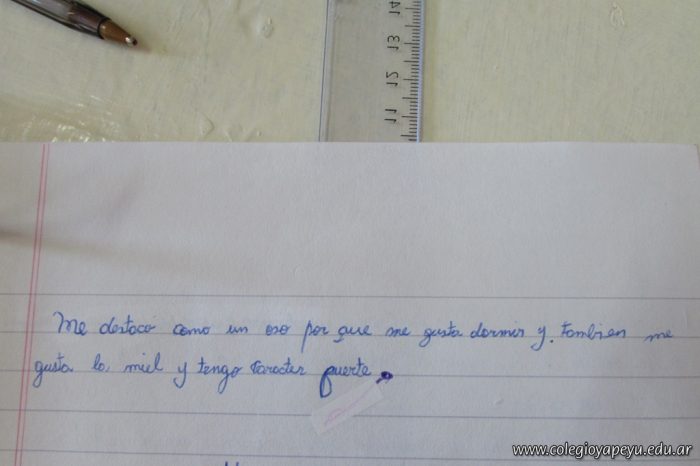 14
13
12
11
Me destaco como un oso por que me gusta dormir y. tambien me
gusta la miel y tengo caracter fuerte.
www.colegioyapeyu.edu.ar